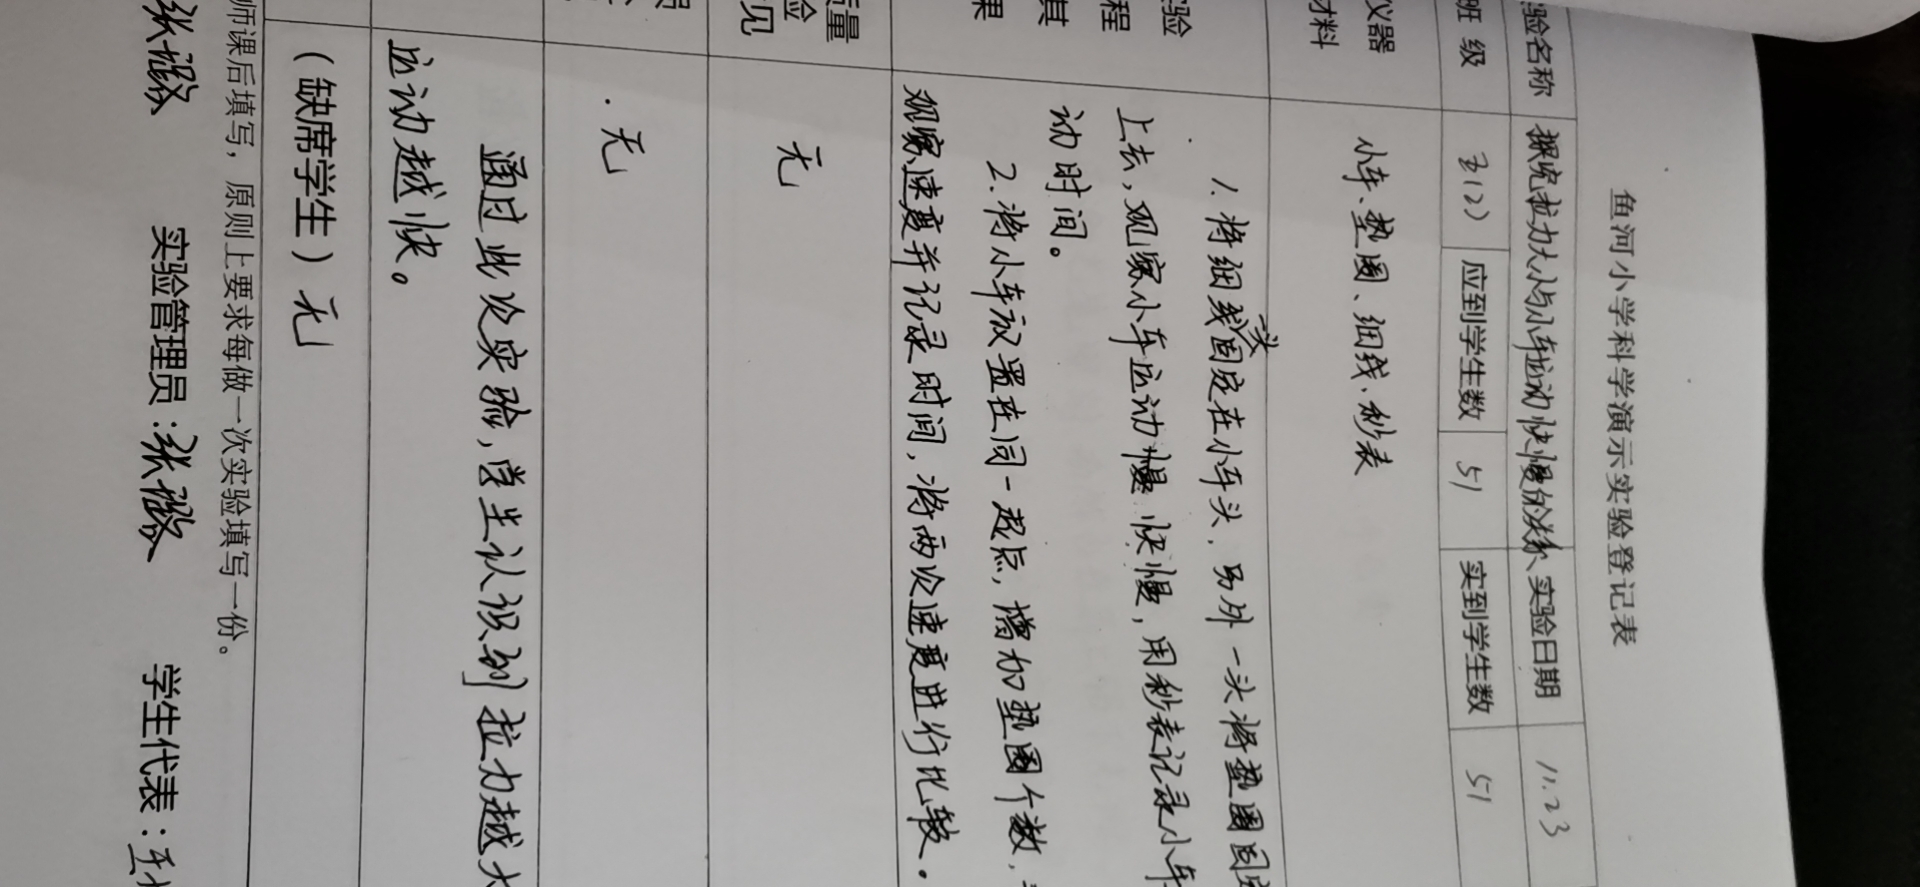 鱼河小学科学演示实验登记表
验名称 探究拉力大小与小车运动快慢的关系 实验日期 11.23
班 级 五(2) 应到学生数 51 实到学生数 51
仪器
材料
小车、垫圈、细线、秒表
验
程
其
果
1. 将细线一头固定在小车头,另外一头将垫圈固定
上去,观察小车运动慢快慢,用秒表记录小车
动时间。
2. 将小车放置在同一起点,增加垫圈个数,
观察速度并记录时间,将两次速度进行比较。
质量
验
见
无
员
无
通过此次实验,学生认识到拉力越大
运动越快。
(缺席学生)无
师课后填写,原则上要求每做一次实验填写一份。
实验管理员: 学生代表: